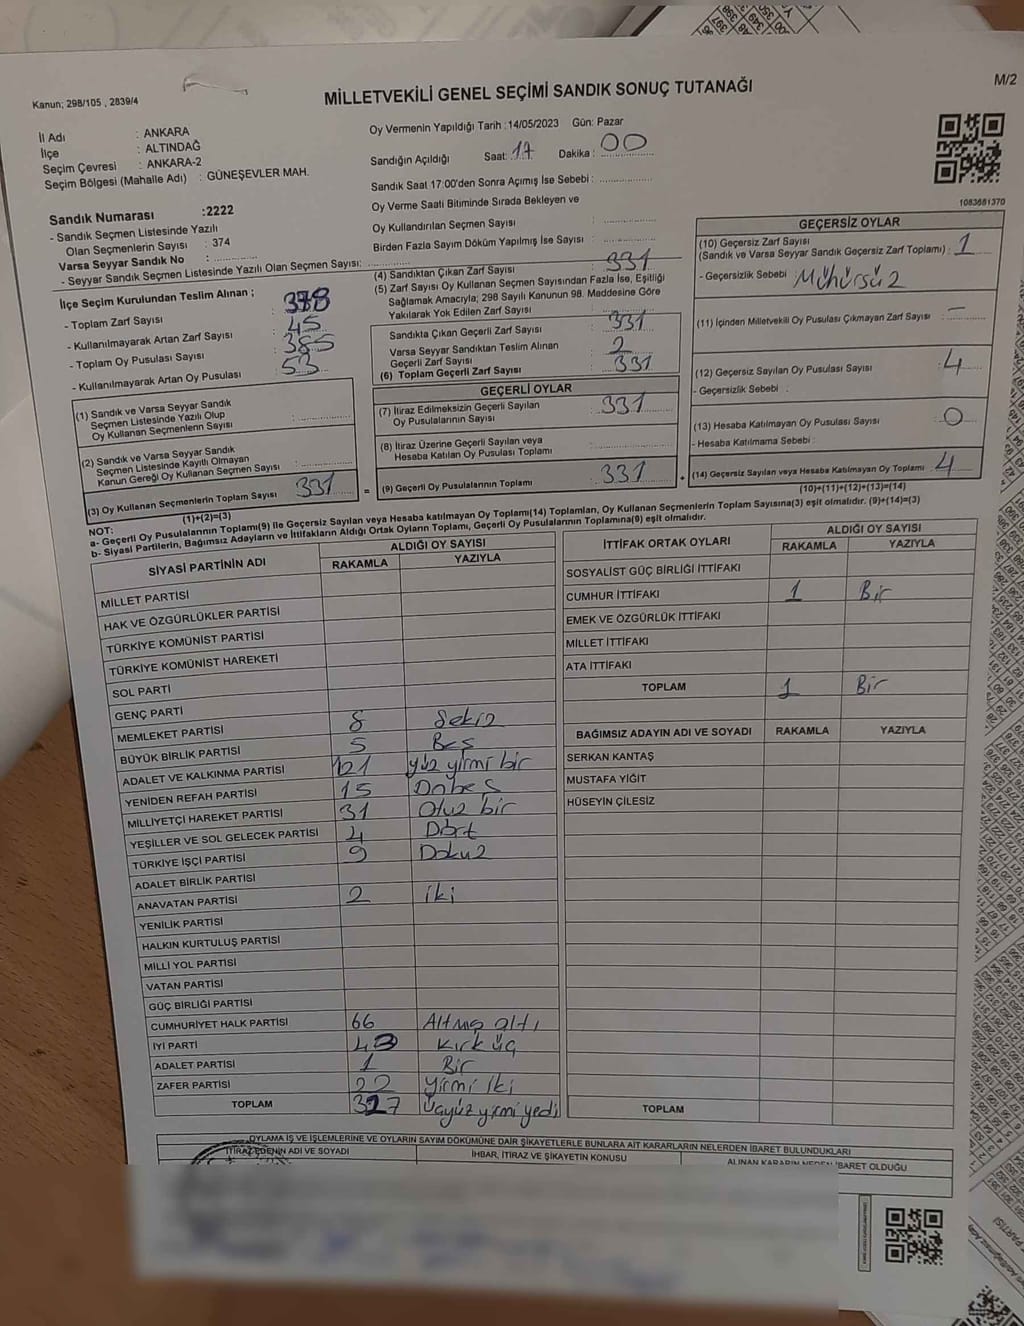 Kanun; 298/105 , 2839/4
MİLLETVEKİLİ GENEL SEÇİMİ SANDIK SONUÇ TUTANAĞI
M/2
İl Adı : ANKARA
İlçe : ALTINDAĞ
Seçim Çevresi : ANKARA-2
Seçim Bölgesi (Mahalle Adı) : GÜNEŞEVLER MAH.
Sandık Numarası :2222
- Sandık Seçmen Listesinde Yazılı
Olan Seçmenlerin Sayısı : 374
Varsa Seyyar Sandık No :
- Seyyar Sandık Seçmen Listesinde Yazılı Olan Seçmen Sayısı:
İlçe Seçim Kurulundan Teslim Alınan ;
- Toplam Zarf Sayısı : 378
- Kullanılmayarak Artan Zarf Sayısı : 45
- Toplam Oy Pusulası Sayısı : 385
- Kullanılmayarak Artan Oy Pusulası : 53
(1) Sandık ve Varsa Seyyar Sandık
Seçmen Listesinde Yazılı Olup
Oy Kullanan Seçmenlerin Sayısı :
(2) Sandık ve Varsa Seyyar Sandık
Seçmen Listesinde Kayıtlı Olmayan
Kanun Gereği Oy Kullanan Seçmen Sayısı :
(3) Oy Kullanan Seçmenlerin Toplam Sayısı 331
(1)+(2)=(3)
Oy Vermenin Yapıldığı Tarih :14/05/2023 Gün: Pazar
Sandığın Açıldığı Saat: 17 Dakika : 00
Sandık Saat 17:00'den Sonra Açımış İse Sebebi :
Oy Verme Saati Bitiminde Sırada Bekleyen ve
Oy Kullandırılan Seçmen Sayısı :
Birden Fazla Sayım Döküm Yapılmış İse Sayısı :
(4) Sandıktan Çıkan Zarf Sayısı : 331
(5) Zarf Sayısı Oy Kullanan Seçmen Sayısından Fazla İse, Eşitliği
Sağlamak Amacıyla; 298 Sayılı Kanunun 98. Maddesine Göre
Yakılarak Yok Edilen Zarf Sayısı :
Sandıkta Çıkan Geçerli Zarf Sayısı : 331
Varsa Seyyar Sandıktan Teslim Alınan
Geçerli Zarf Sayısı : 2
(6) Toplam Geçerli Zarf Sayısı : 331
GEÇERLİ OYLAR
(7) İtiraz Edilmeksizin Geçerli Sayılan
Oy Pusulalarının Sayısı : 331
(8) İtiraz Üzerine Geçerli Sayılan veya
Hesaba Katılan Oy Pusulası Toplamı :
= (9) Geçerli Oy Pusulalarının Toplamı : 331 +
1083681370
GEÇERSİZ OYLAR
(10) Geçersiz Zarf Sayısı
(Sandık ve Varsa Seyyar Sandık Geçersiz Zarf Toplamı) : 1
- Geçersizlik Sebebi : Mühürsüz
(11) İçinden Milletvekili Oy Pusulası Çıkmayan Zarf Sayısı : –
(12) Geçersiz Sayılan Oy Pusulası Sayısı : 4
- Geçersizlik Sebebi :
(13) Hesaba Katılmayan Oy Pusulası Sayısı : 0
- Hesaba Katılmama Sebebi :
(14) Geçersiz Sayılan veya Hesaba Katılmayan Oy Toplamı : 4
(10)+(11)+(12)+(13)=(14)
NOT:
a- Geçerli Oy Pusulalarının Toplamı(9) ile Geçersiz Sayılan veya Hesaba katılmayan Oy Toplamı(14) Toplamları, Oy Kullanan Seçmenlerin Toplam Sayısına(3) eşit olmalıdır. (9)+(14)=(3)
b- Siyasi Partilerin, Bağımsız Adayların ve İttifakların Aldığı Ortak Oyların Toplamı, Geçerli Oy Pusulalarının Toplamına(9) eşit olmalıdır.
SİYASİ PARTİNİN ADI ALDIĞI OY SAYISI
RAKAMLA YAZIYLA
MİLLET PARTİSİ
HAK VE ÖZGÜRLÜKLER PARTİSİ
TÜRKİYE KOMÜNİST PARTİSİ
TÜRKİYE KOMÜNİST HAREKETİ
SOL PARTİ
GENÇ PARTİ
MEMLEKET PARTİSİ 8 Sekiz
BÜYÜK BİRLİK PARTİSİ 5 Beş
ADALET VE KALKINMA PARTİSİ 121 yüz yirmi bir
YENİDEN REFAH PARTİSİ 15 Onbeş
MİLLİYETÇİ HAREKET PARTİSİ 31 Otuz bir
YEŞİLLER VE SOL GELECEK PARTİSİ 4 Dört
TÜRKİYE İŞÇİ PARTİSİ 9 Dokuz
ADALET BİRLİK PARTİSİ
ANAVATAN PARTİSİ 2 iki
YENİLİK PARTİSİ
HALKIN KURTULUŞ PARTİSİ
MİLLİ YOL PARTİSİ
VATAN PARTİSİ
GÜÇ BİRLİĞİ PARTİSİ
CUMHURİYET HALK PARTİSİ 66 Altmış altı
İYİ PARTİ 43 Kırk üç
ADALET PARTİSİ 1 Bir
ZAFER PARTİSİ 22 Yirmi iki
TOPLAM 327 Üçyüz yirmi yedi
İTTİFAK ORTAK OYLARI ALDIĞI OY SAYISI
RAKAMLA YAZIYLA
SOSYALİST GÜÇ BİRLİĞİ İTTİFAKI
CUMHUR İTTİFAKI 1 Bir
EMEK VE ÖZGÜRLÜK İTTİFAKI
MİLLET İTTİFAKI
ATA İTTİFAKI
TOPLAM 1 Bir
BAĞIMSIZ ADAYIN ADI VE SOYADI RAKAMLA YAZIYLA
SERKAN KANTAŞ
MUSTAFA YİĞİT
HÜSEYİN ÇİLESİZ
TOPLAM
OYLAMA İŞ VE İŞLEMLERİNE VE OYLARIN SAYIM DÖKÜMÜNE DAİR ŞİKAYETLERLE BUNLARA AİT KARARLARIN NELERDEN İBARET BULUNDUKLARI
İTİRAZ EDENİN ADI VE SOYADI
İHBAR, İTİRAZ VE ŞİKAYETİN KONUSU
ALINAN KARARIN NEDEN İBARET OLDUĞU